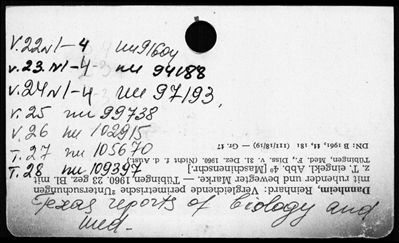 V.22N1-4 nu91604
v.23.N1-4- nu 94188
v.24N1-4 nu 97193,
v. 25 nu 99738
V 26 nu 102915
T. 27 nu 105670
T. 28 nu 109397
DN: B 1961, 11, 181 (111/8/19) — Gr. 17
Tübingen, Med. F., Diss. v. 31. Dez. 1960. (Nicht f. d. Aust.)
z. T. eingekl. Abb. 4° [Maschinenschr.]
mit ruhender und bewegter Marke. — Tübingen 1960. 23 gez. Bl. mit
Dannheim, Reinhard: Vergleichende perimetrische Untersuchungen
Texas reports of biology and
med.